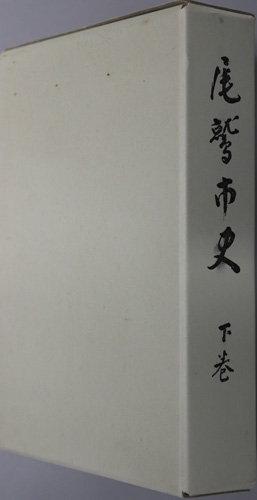 尾鷲市史
下巻